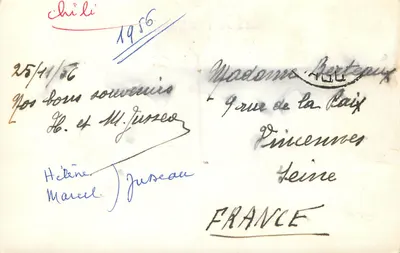 chili
1956
25/11/56
Nos bons souvenirs
H. et M. Jusseau
Hélène
Marcel
Jusseau
Madame Berteaux
9 rue de la Paix
Vincennes
Seine
FRANCE